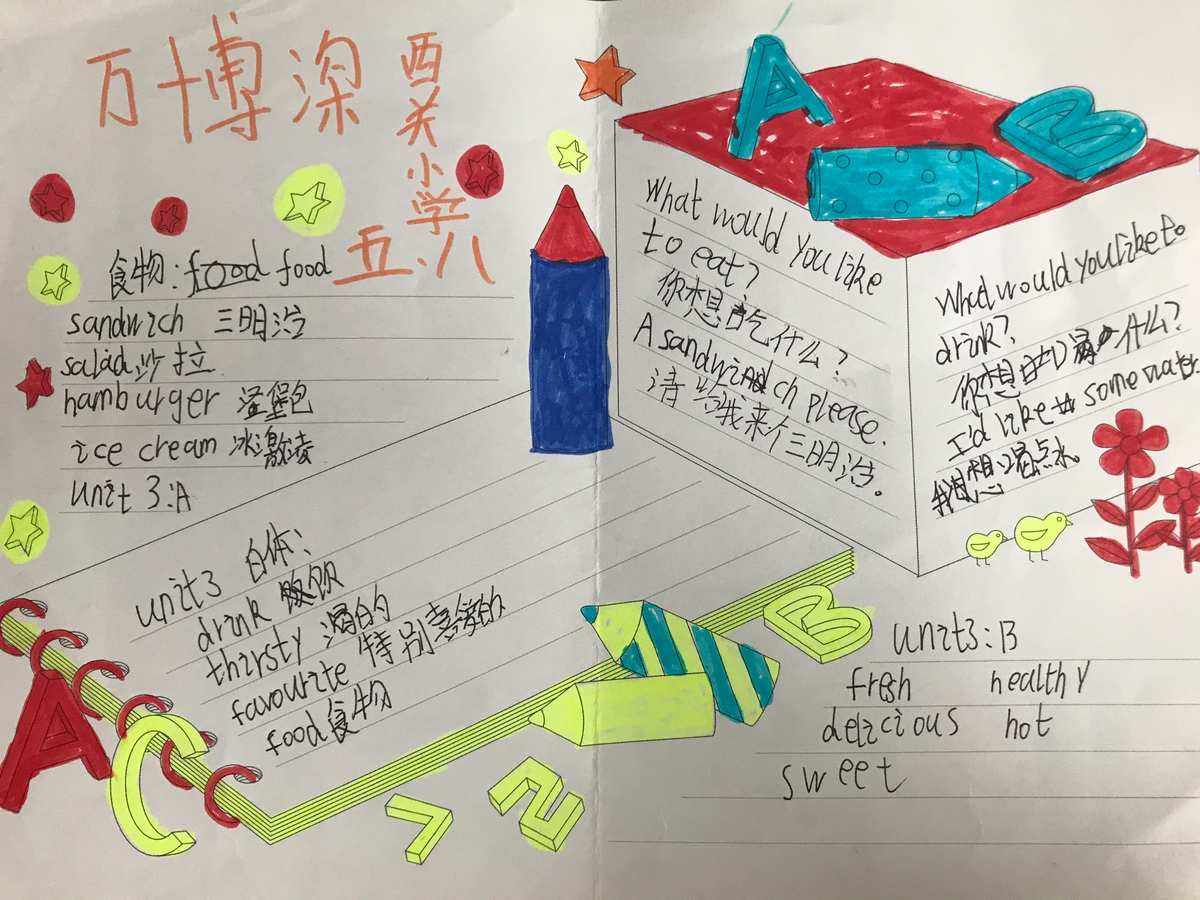 万博深
西关小学
五.八
食物: food food
sandwich 三明治
salad 沙拉
hamburger 汉堡包
ice cream 冰激凌
unit 3:A
unit3 白体:
drink 饮
thirsty 渴的
favourite 特别喜爱的
food 食物
A
C
1 2
A B
What would you like
to eat?
你想吃什么?
A sandwich please.
请给我来个三明治。
What would you like to
drink?
你想喝什么?
I'd like some water
我想喝点水。
B
unit3:B
fresh healthy
delicious hot
sweet